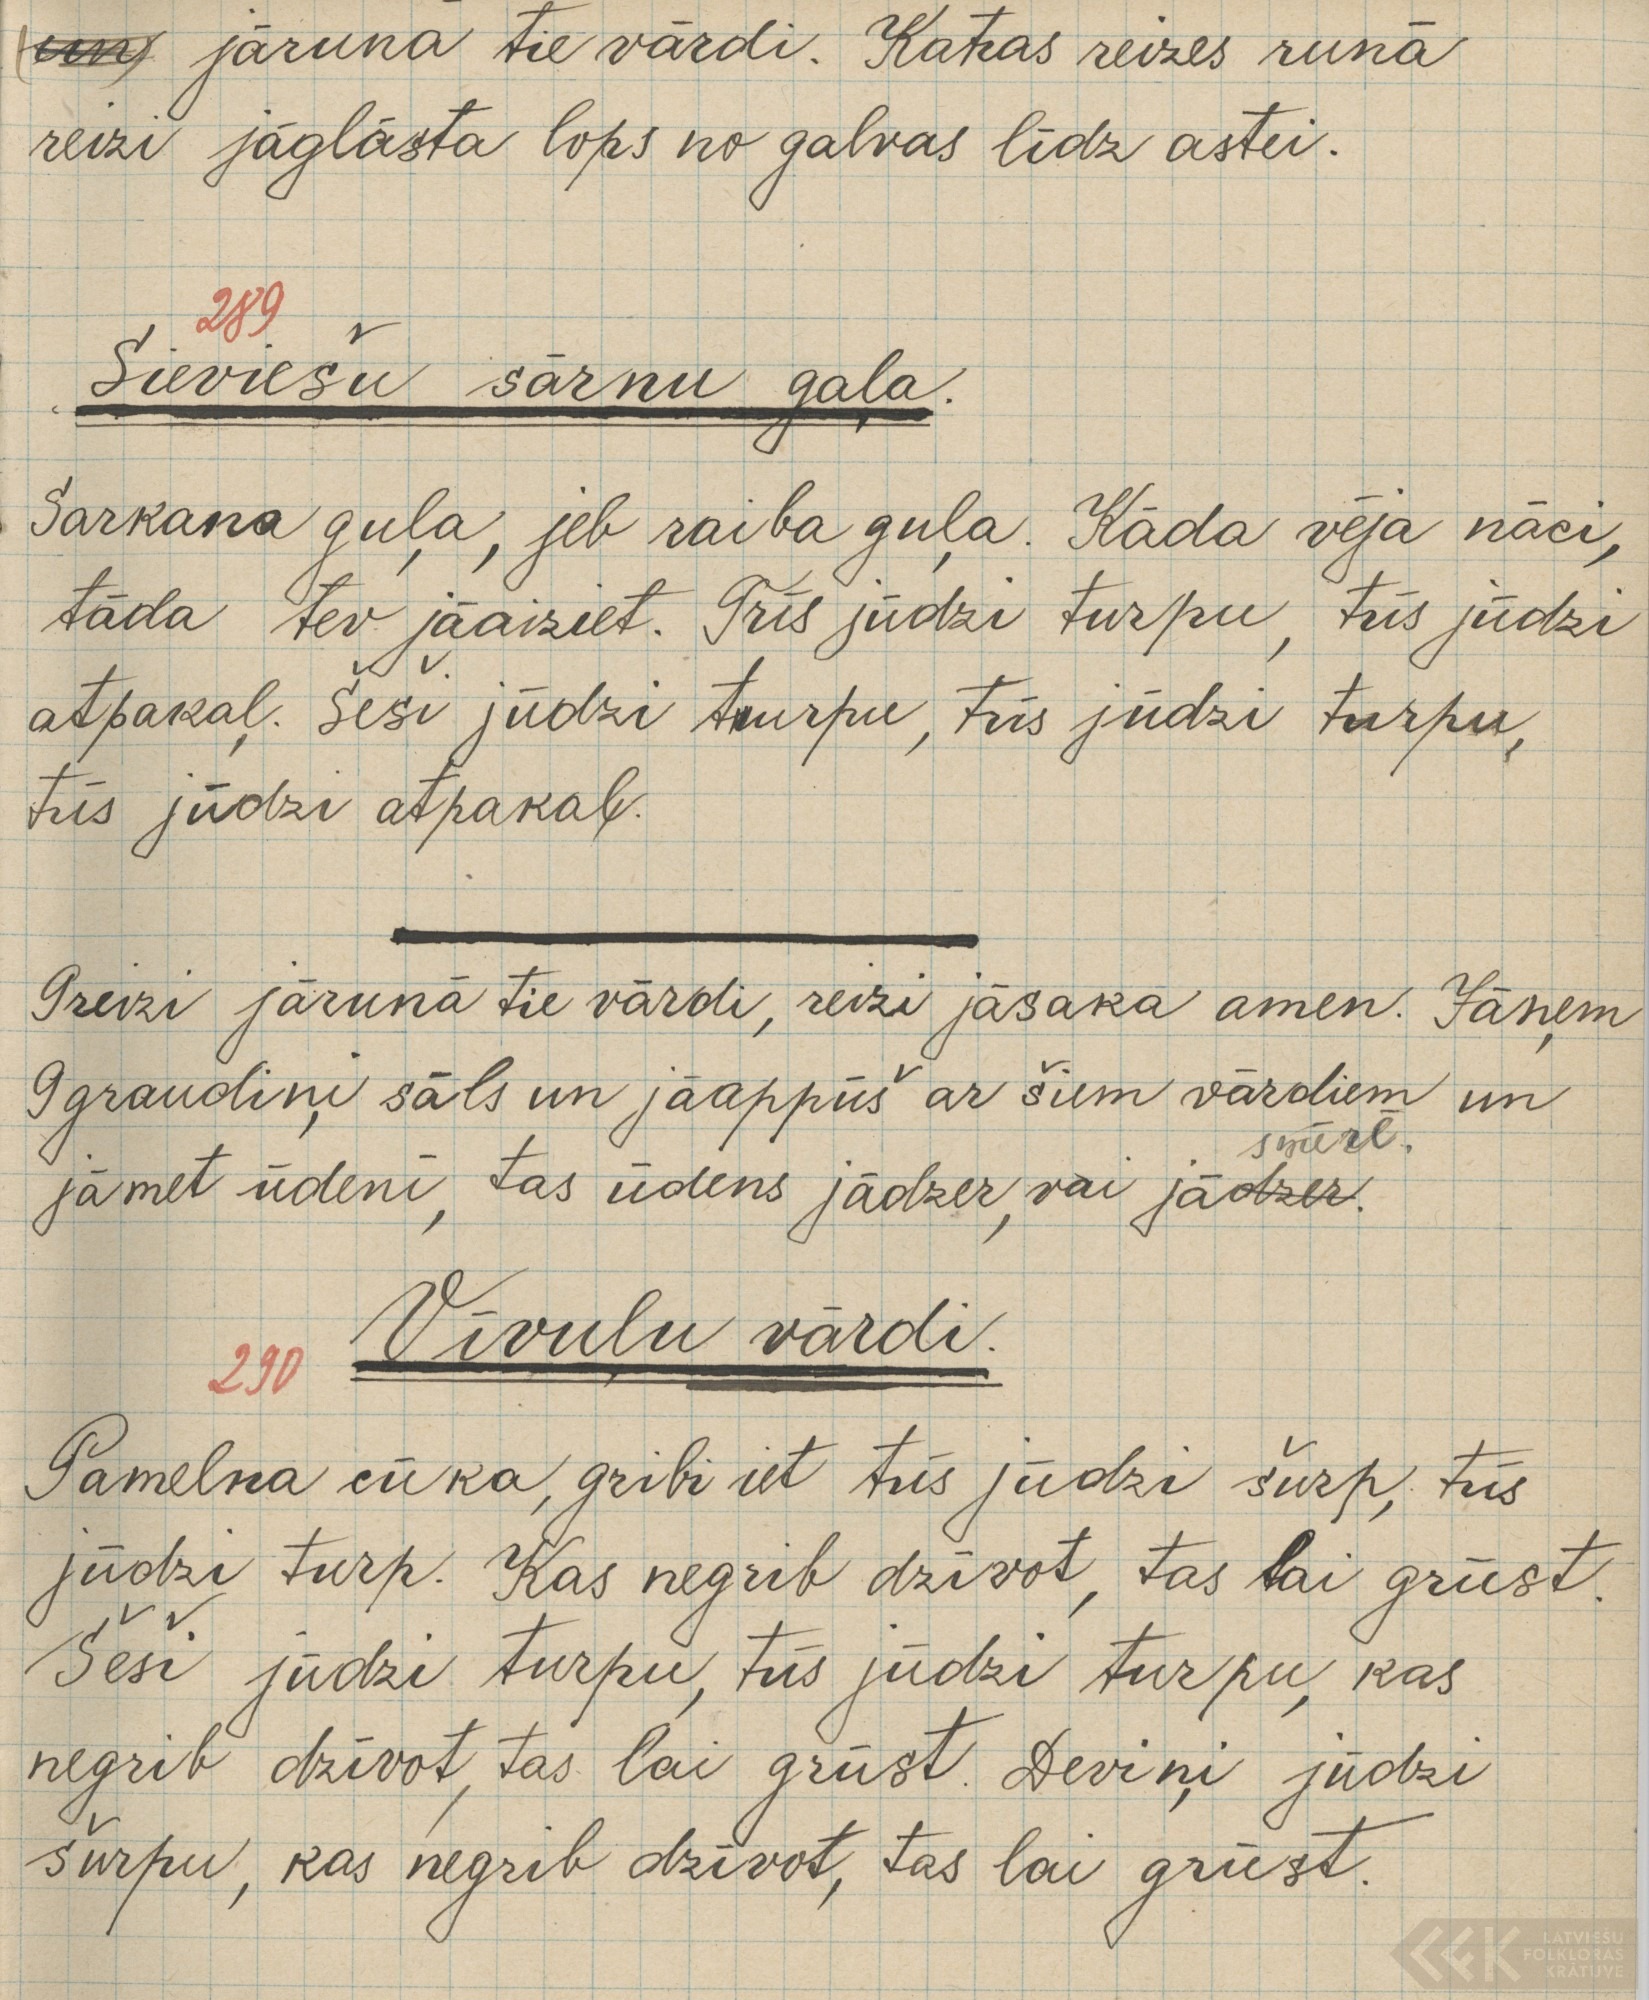 (un) jārunā tie vārdi. Katras reizes runā
reizi jāglāsta lops no galvas līdz astei.
289
Sieviešu sārnu gaļa.
Sarkana guļa, jeb raiba guļa. Kāda vēja nāci,
tāda tev jāaiziet. Trīs jūdzi turpu, trīs jūdzi
atpakaļ. Seši jūdzi turpu, trīs jūdzi turpu,
trīs jūdzi atpakaļ.
9reizi jārunā tie vārdi, reizi jāsaka amen. Jāņem
9graudiņi sāls un jāappūš ar šiem vārdiem un
smērē.
jāmet ūdenī, tas ūdens jādzer, vai jādzer.
Vīvuļu vārdi.
290
Pamelna cūka, gribi iet trīs jūdzi šurp, trīs
jūdzi turp. Kas negrib dzīvot, tas lai grūst.
Seši jūdzi turpu, trīs jūdzi turpu, kas
negrib dzīvot, tas lai grūst. Deviņi jūdzi
šurpu, kas negrib dzīvot, tas lai grūst.
LATVIEŠU
FOLKLORAS
KRĀTUVE